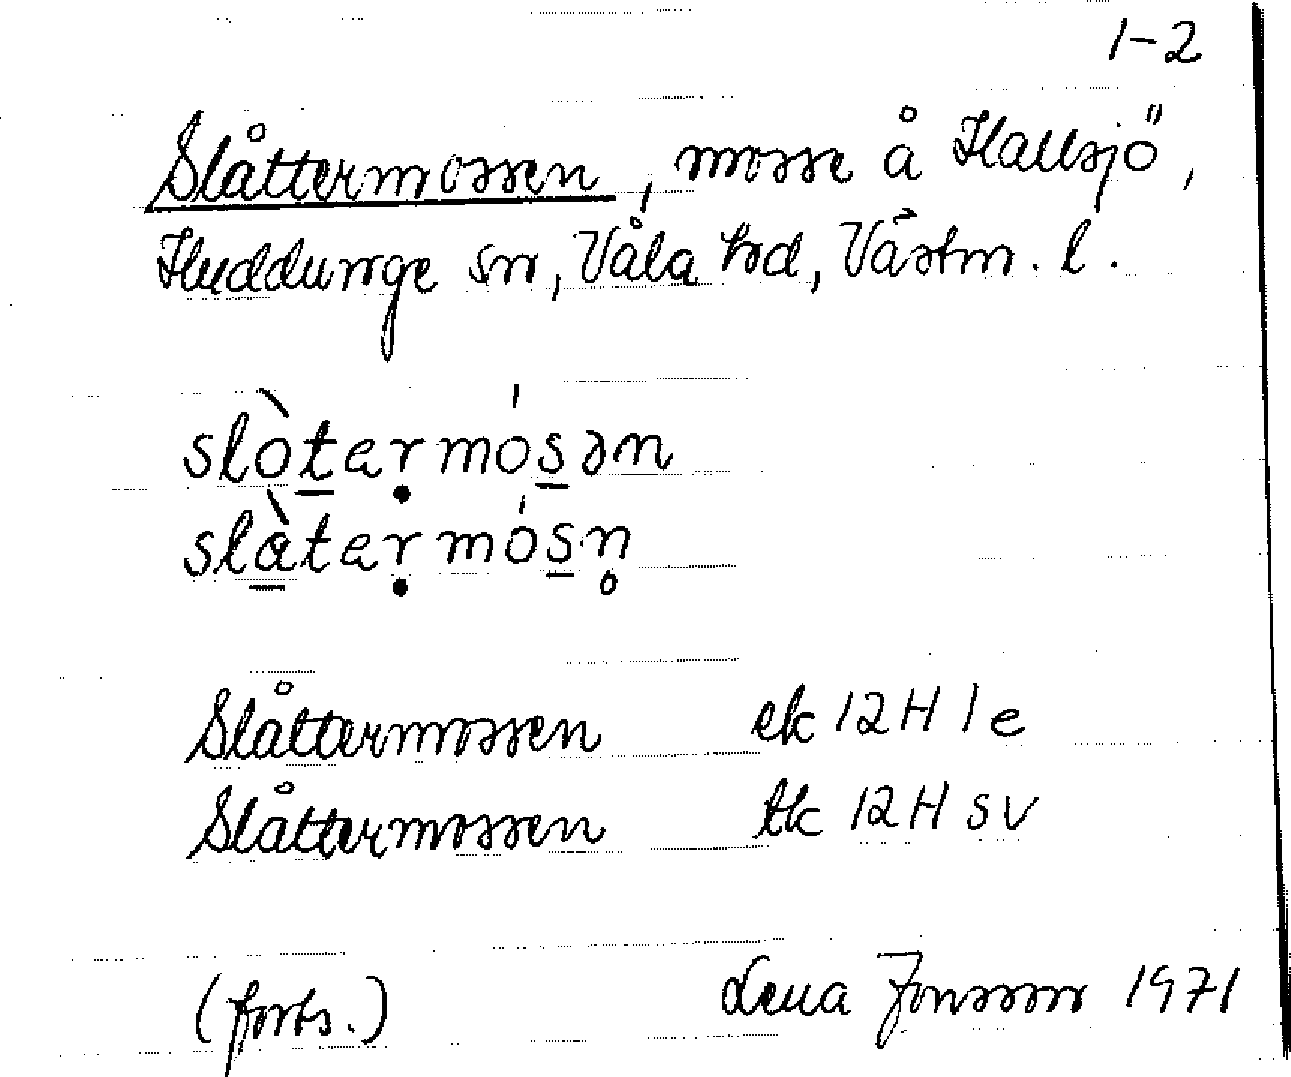 1-2
Slåttermossen, mosse å Hallsjö,
Huddunge sn, Våla hd, Västm. l.
slòt̲ȧṛmós̲ən
slà̲taṛmós̲n̥
Slåttermossen ek 12H 1e
Slåttermossen tk 12H SV
(forts.) Lena Jonsson 1971